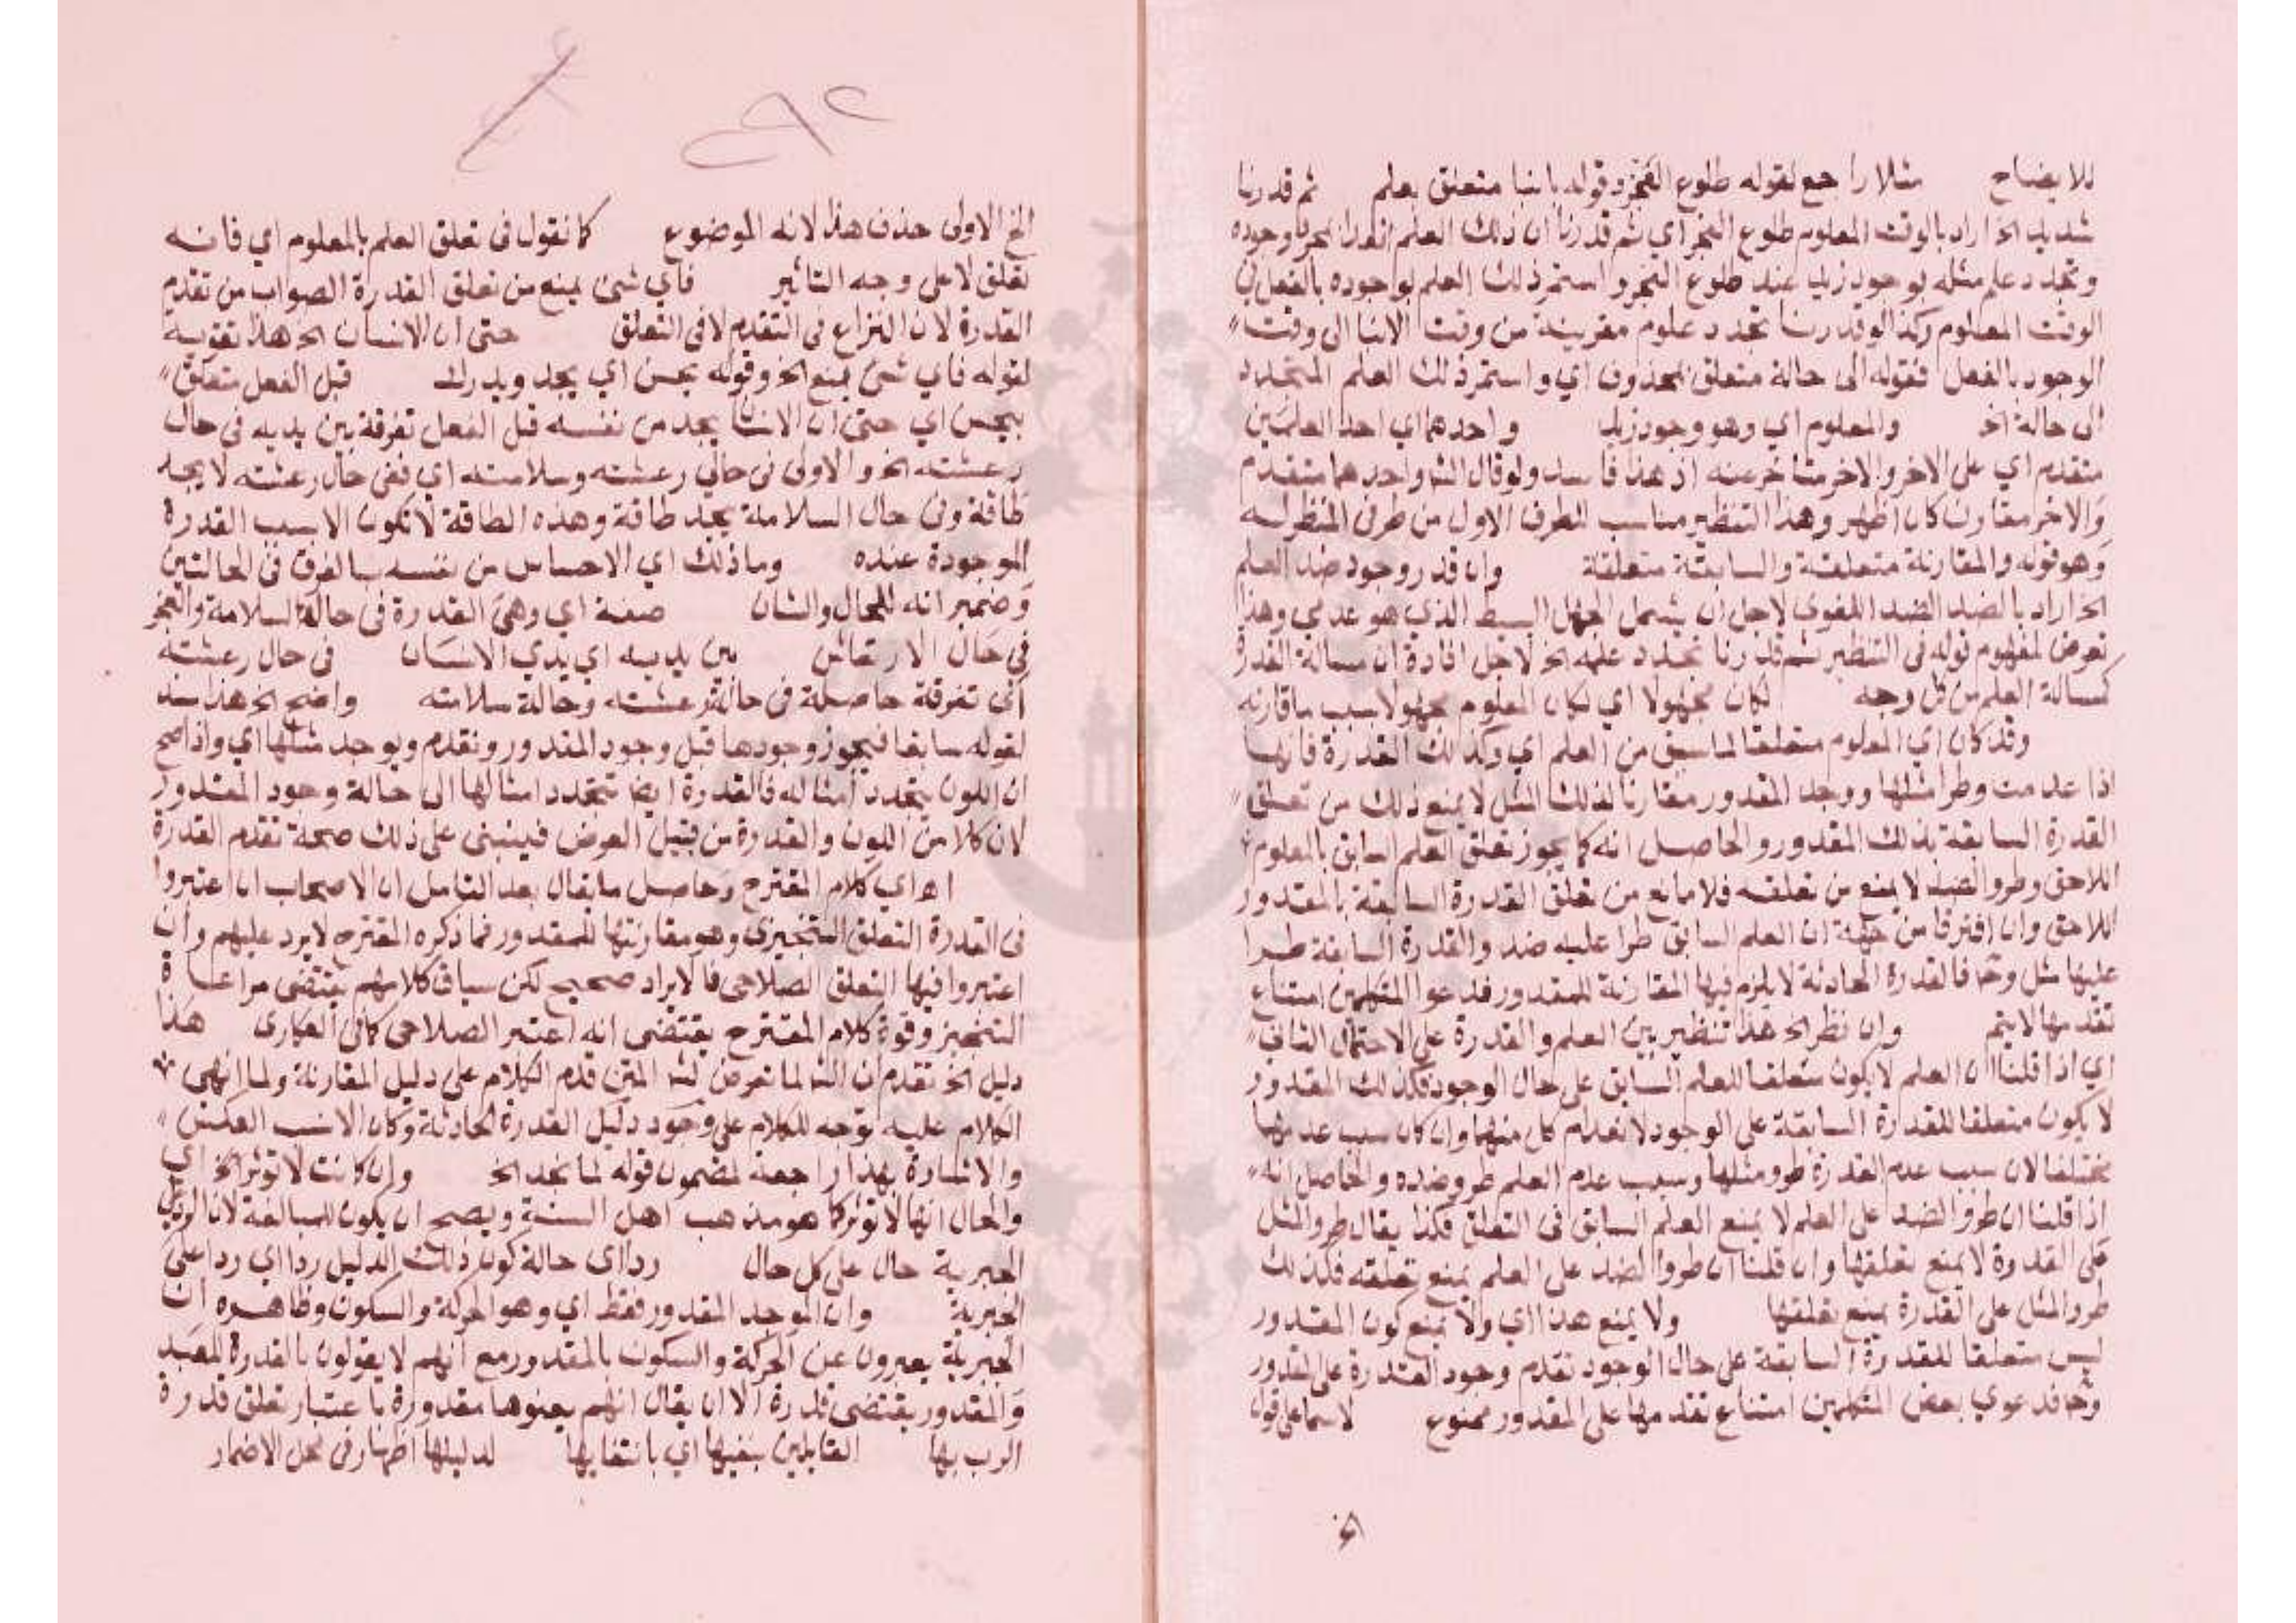 للايضاح مثلا راجع لقوله طلوع الفجر وقوله بانبا متعلق بعلم ثم قدرنا
شديد الخ اراد بالوقت المعلوم طلوع الفجر اي ثم قدرنا ان ذلك العلم
وتجدد علم مثله بوجود زيد عند طلوع الفجر واستمر ذلك العلم بوجوده بالفعل في
الوقت المعلوم وكذا لو قدرنا تجدد علوم مقرينة من وقت الانبا الى وقت
الوجود بالفعل فقوله الى حالة متعلق بمحذوف اي واستمر ذلك العلم المتجدد
الى حالة الخ والمعلوم اي وهو وجود زيد واحدهما اي احد العلمين
متقدم اي على الاخر والاخر متاخر عنه اذ هذا فاسد ولو قال الش واحدهما متقدم
والاخر مقارن كان اظهر وهذا التنظير مناسب للطرف الاول من طرفي المنظر له
وهو قوله والمقارنة متعلقة والسابقة متعلقة وان قدر وجود ضد العلم
الخ اراد بالضد الضد اللغوي لاجل ان يشمل الجهل البسيط الذي هو عدمي وهذا
تعرض لمفهوم قوله في التنظير ثم قدرنا تجدد علمه الخ لاجل افادة ان مسالة القدرة
كمسالة العلم من كل وجه لكان مجهولا اي لكان المعلوم مجهولا بسبب ما قارنه
وقد كان اي المعلوم متعلقا لما سبق من العلم اي وكذلك القدرة فانها
اذا عدمت وطرا مثلها ووجد المقدور مقارنا لذلك المثل لا يمنع ذلك من تعلق
القدرة السابقة بذلك المقدور والحاصل انه كما يجوز تعلق العلم السابق بالمعلوم
اللاحق وطرو الضد لا يمنع من تعلقه فلا مانع من تعلق القدرة السابقة بالمقدور
اللاحق وان افترقا من جهة ان العلم السابق طرا عليه ضد والقدرة السابقة طرا
عليها مثل وح فالقدرة الحادثة لا يلزم فيها المقارنة للمقدور فدعوا المتكلمين امتناع
تقدمها لا يتم وان نظر الخ هذا تنظير بين العلم والقدرة على الاحتمال الثاني
اي اذا قلنا ان العلم لا يكون متعلقا للعلم السابق على حال الوجود فكذلك المقدور
لا يكون متعلقا للقدرة السابقة على الوجود لانعدام كل منهما وان كان سبب عدمهما
مختلفا لان سبب عدم القدرة طرو مثلها وسبب عدم العلم طرو ضده والحاصل انه
اذا قلنا ان طرو الضد على العلم لا يمنع العلم السابق في التعلق فكذا يقال طرو المثل
على القدرة لا يمنع تعلقها وان قلنا ان طرو الضد على العلم يمنع تعلقه فكذلك
طرو المثل على القدرة يمنع تعلقها ولا يمنع هذا اي ولا يمنع كون المقدور
ليس متعلقا للقدرة السابقة على حال الوجود تقدم وجود القدرة على المقدور
وح فدعوي بعض المتكلمين امتناع تقدمها على المقدور ممنوع لا سيما على قول
الخ الاولى حذف هذا لانه الموضوع كما نقول في تعلق العلم بالمعلوم اي فانه
تعلق لا على وجه التاثير فاي شئ يمنع من تعلق القدرة الصواب من تقدم
القدرة لان النزاع في التقدم لا في التعلق حتى ان الانسان الخ هذا تقوية
لقوله فاي شئ يمنع الخ وقوله يحس اي يجد ويدرك قبل الفعل متعلق
بيحس اي حتى ان الانسا يجد من نفسه قبل الفعل تفرقة بين يديه في حال
رعشته الخ والاولى في حالي رعشته وسلامته اي ففي حال رعشته لا يجد
طاقة وفي حال السلامة يجد طاقة وهذه الطاقة لا تكون الا سبب القدرة
الموجودة عنده وما ذلك اي الاحساس من نفسه بالفرق في الحالتين
وضمير انه للحال والشان صفة اي وهي القدرة في حالة السلامة والعجز
في حال الارتعاش بين يديه اي يدي الانسان في حال رعشته
اي تفرقة حاصلة في حالة رعشته وحالة سلامته واضح الخ هذا سند
لقوله سابقا فيجوز وجودها قبل وجود المقدور وتقدم ويوجد مثلها اي واذا صح
ان اللون يتجدد امثاله فالقدرة ايضا تتجدد امثالها الى حالة وجود المقدور
لان كلا من اللون والقدرة من قبيل العرض فينبني على ذلك صحة تقدم القدرة
اه اي كلام المقترح وحاصل ما يقال بعد التامل ان الاصحاب ان اعتبروا
في القدرة التعلق التنجيزي وهو مقارنتها للمقدور فما ذكره المقترح لا يرد عليهم وان
اعتبروا فيها التعلق الصلاحي فالايراد صحيح لكن سياق كلامهم يقتضي مراعاة
التنجيز وقوة كلام المقترح يقتضي انه اعتبر الصلاحي كما في العكاري هذا
دليل الخ تقدم ان الش لما تعرض لش المتن قدم الكلام على دليل المقارنة ولما انهى
الكلام عليه توجه للكلام على وجود دليل القدرة الحادثة وكان الانسب العكس
والاشارة بهذا راجعة لمضمون قوله لما نجد الخ وان كانت لا توثر الخ اي
والحال انها لا توثر كما هو مذهب اهل السنة ويصح ان يكون للمبالغة لان الرد على
الجبرية حال على كل حال ردا اي حالة كون ذلك الدليل ردا اي ردا على
الجبرية وان الموجد المقدور فقط اي وهو الحركة والسكون وظاهره ان
الجبرية يعبرون عن الحركة والسكون بالمقدور مع انهم لا يقولون بالقدرة للعبد
والمقدور يقتضي قدرة الا ان يقال انهم يعنوها مقدورة باعتبار تعلق قدرة
الرب بها القايلين بنفيها اي بانتفايها لدليلها اظهار في محل الاضمار